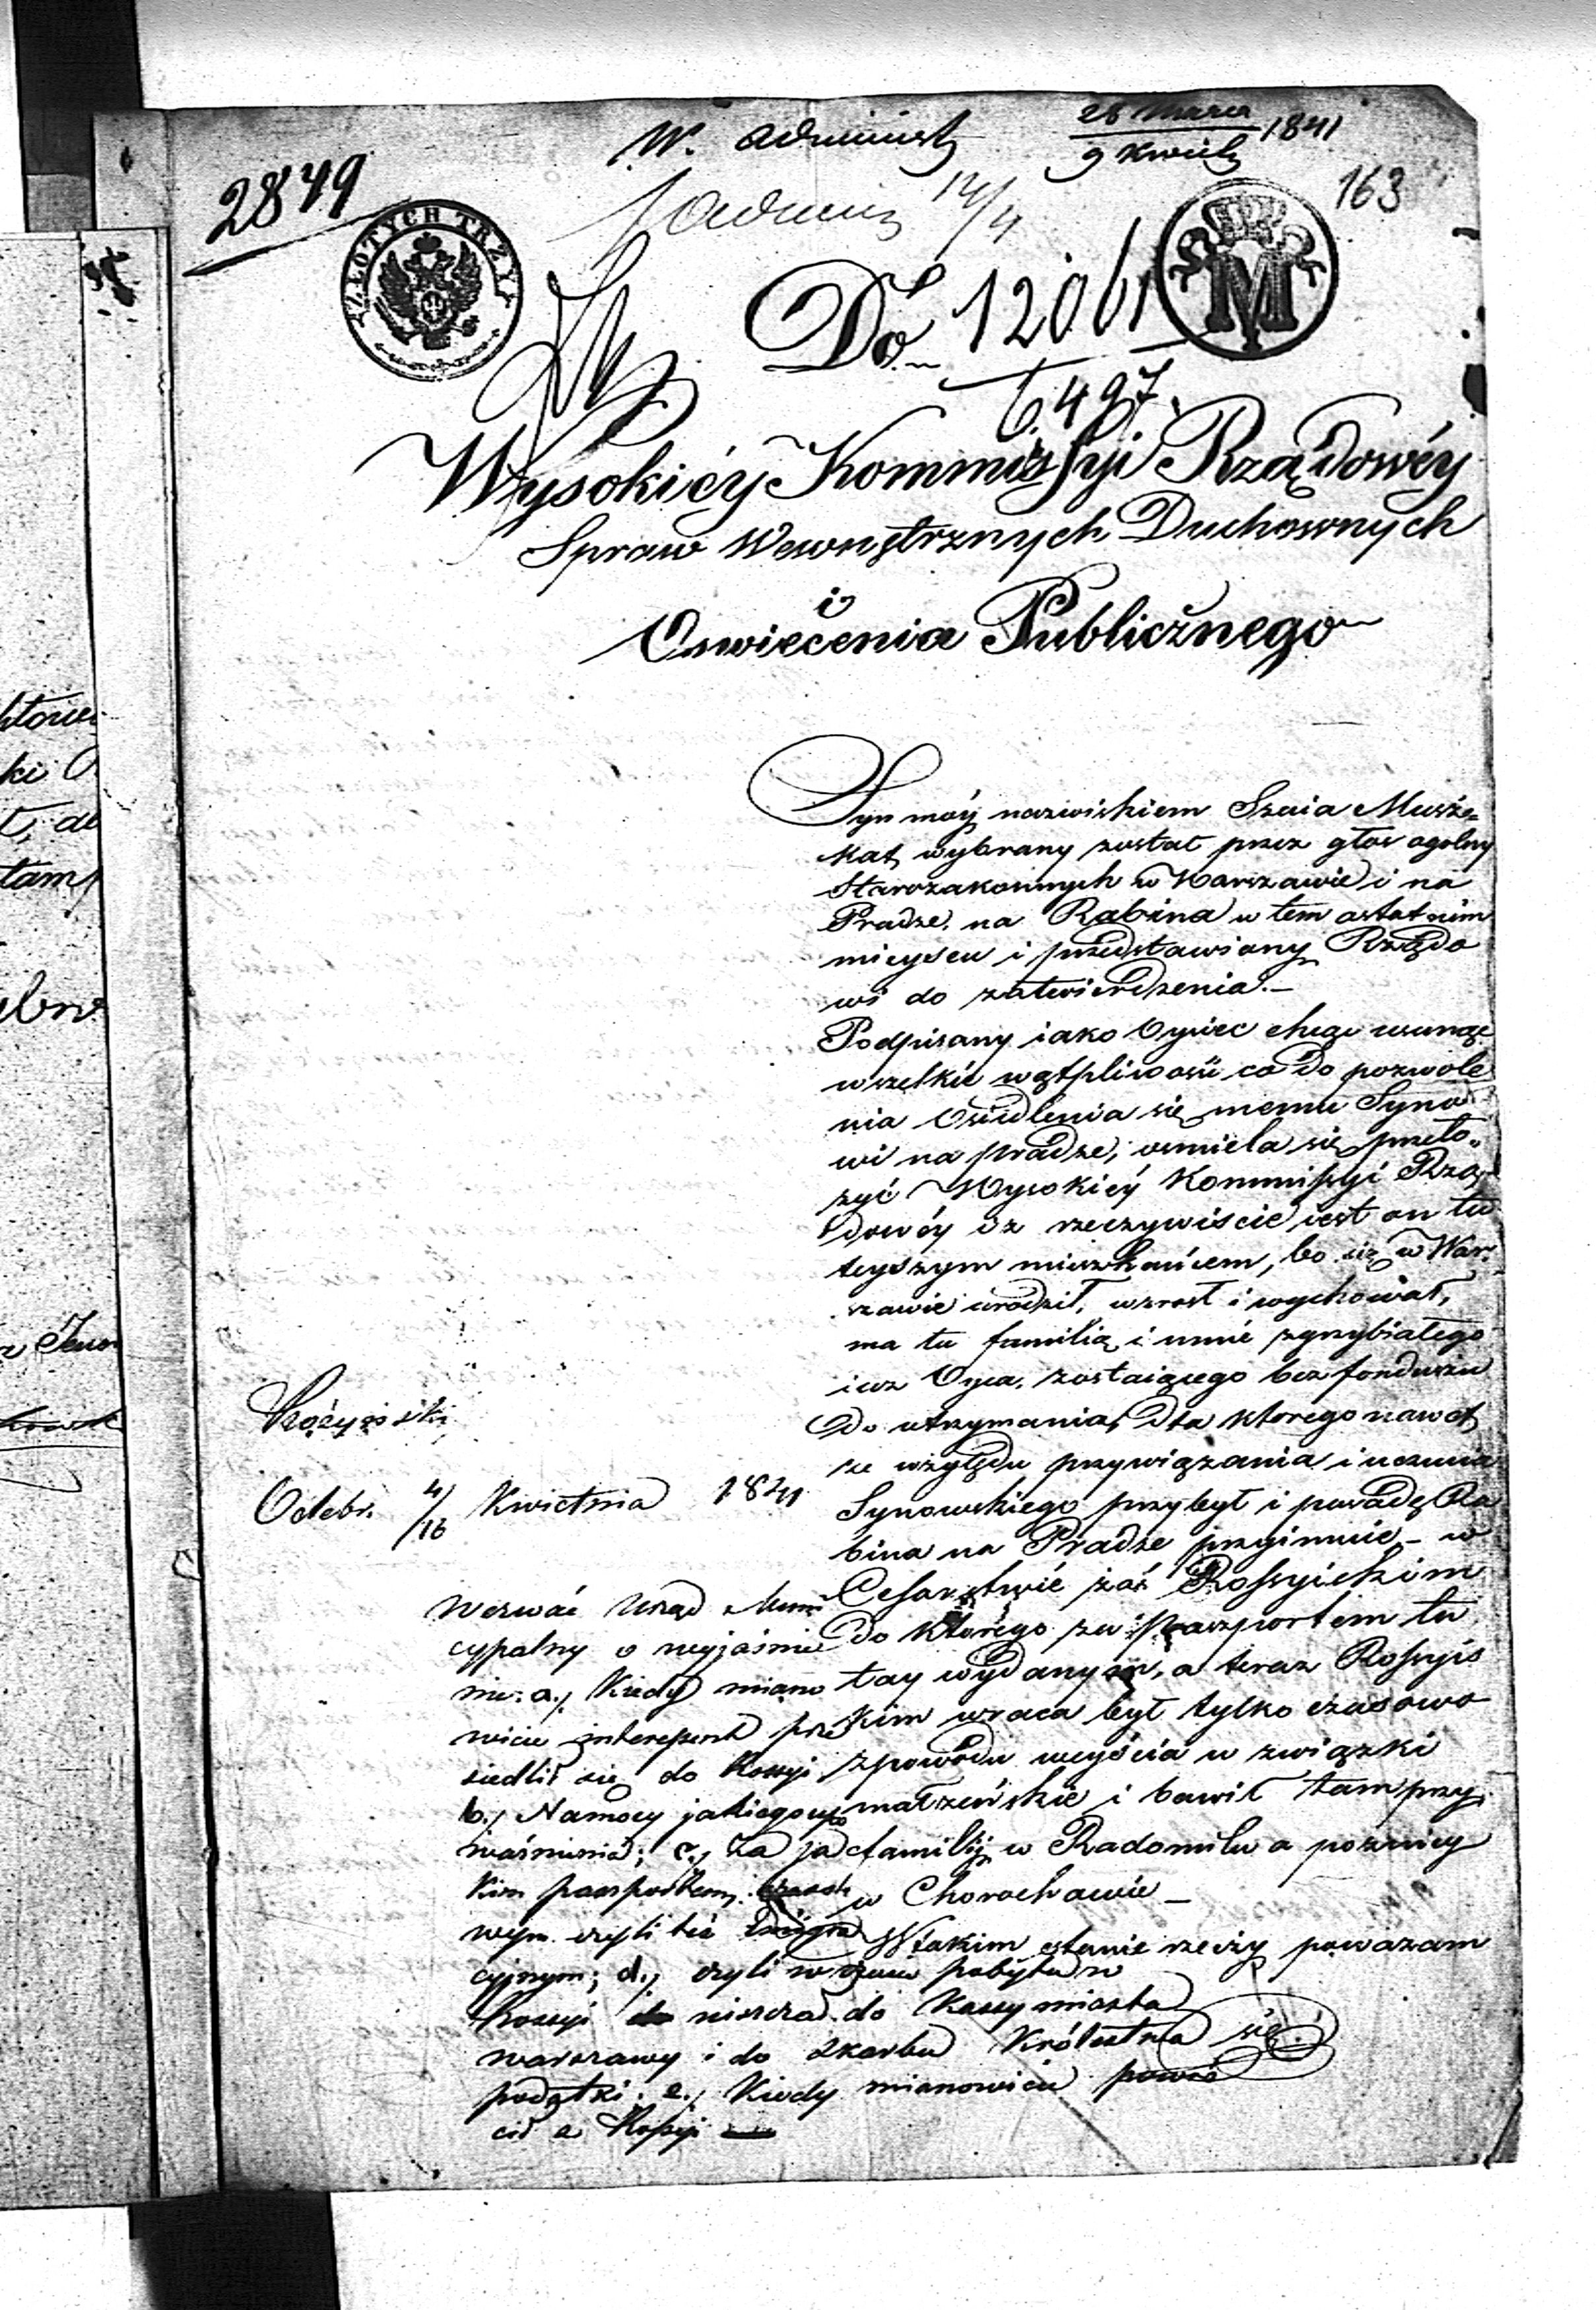 W. Administ.
28 Marca
9 Kwiet. 1841
2849
163
12/4
ZŁOTYCH TRZY
M
Do
12061
6.497
Wysokiéy Kommissyi Rządowéy
Spraw Wewnętrznych Duchownych
i
Oswiecenia Publicznego
Syn móy nazwiskiem Szaia Musz=
kat, wybrany został przez głos ogolny
Starozakonnych w Warszawie i na
Pradze, na Rabina w tem ostatnim
mieyscu i przedstawiony Rządo
wi do zatwierdzenia.—
Podpisany iako Oyciec chcąc usunąć
wszelkie wątpliwosci co do pozwole
nia Osiedlenia się memu Syno
wi na pradze, osmiela się przeło=
żyć Wysokiéy Kommissyi Rzą
dowéy iż rzeczywiście iest on tu
teyszym mieszkańcem, bo się w War
szawie urodził, wzrosł i wychował,
ma tu familią i mnie zgrzybiałego
iuż Oyca, zostaiącego bez funduszu
do utrzymania, dla ktorego nawet
ze względu przywiązania i uczucia
Synowskiego przybył i posadę Ra
bina na Pradze przyimuie — w
Cesarstwie zaś Rossyiskim
do którego za paszportem tu
tay wydanym, a teraz Rossyis
kim wraca był tylko czasowo
z powodu weyścia w związki
małżeńskie i bawił tam przy
familij w Radomilu a poźniey
w Chorochawie —
W takim stanie rzeczy poważam
się
Odebr. 4/16 Kwietnia 1841
Wezwać Urząd Muni
cypalny o wyjaśnie
nie: a., Kiedy miano
wicie interessent prze
siedlił się do Rossyi
b., Na mocy jakiego upo
ważnienia; c., za ja
kim paszportem,
wym czyli też Emigra
cyjnym; d., czyli w czasie pobytu w
Rossyi niszczał do Kassy miasta
Warszawy i do Skarbu Królestwa
podatki; e., Kiedy mianowicie powró
cił z Rossyi